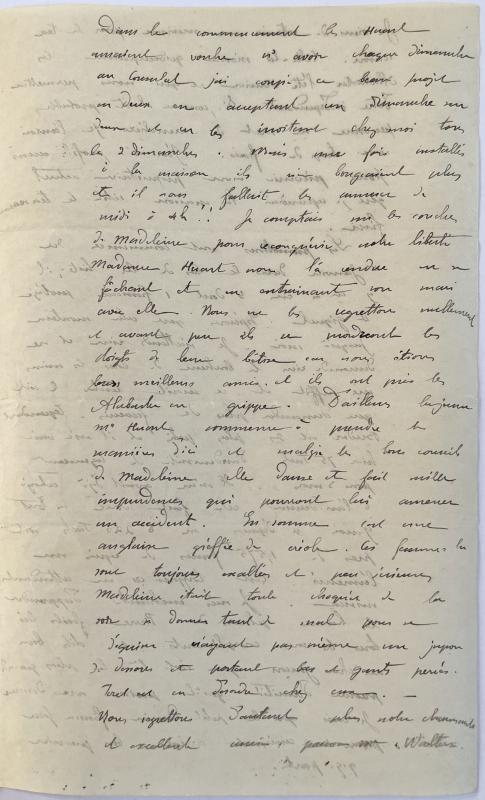 Dans le commencement les Huart
auraient voulu n' avoir chaque dimanche
au Consulat j'ai coupé ce beau projet
en deux en acceptant un dimanche sur
deux et en les invitant chez moi tous
les 2 dimanches. Mais une fois installés
à la maison ils ne bougeaient plus
et il nous fallait les amuser de
midi à 4h !! Je comptais sur les couches
de Madeleine pour reconquérir notre liberté
Madame Huart nous l'a rendue en se
fâchant et en entraînant son mari
avec elle. Nous ne les regrettons nullement
et avant peu ils se mordront les
doigts de leur bêtise car nous étions
leurs meilleurs amis et ils ont pris les
en grippe. D'ailleurs la jeune
Me Huart commence à prendre les
manières d'ici et malgré les bons conseils
de Madeleine elle danse et fait mille
imprudences qui pourront lui amener
un accident. En somme c'est une
anglaise greffée de créole. Ces femmes là
sont toujours excitées et peu sérieuses
Madeleine était toute choquée de la
voir se donner tant de mal pour se
déguiser n'ayant pas même un jupon
de dessous et portant bas et gants percés.
Tout est en désordre chez —
Nous regrettons d'autant plus notre charmante
et excellente Walter.